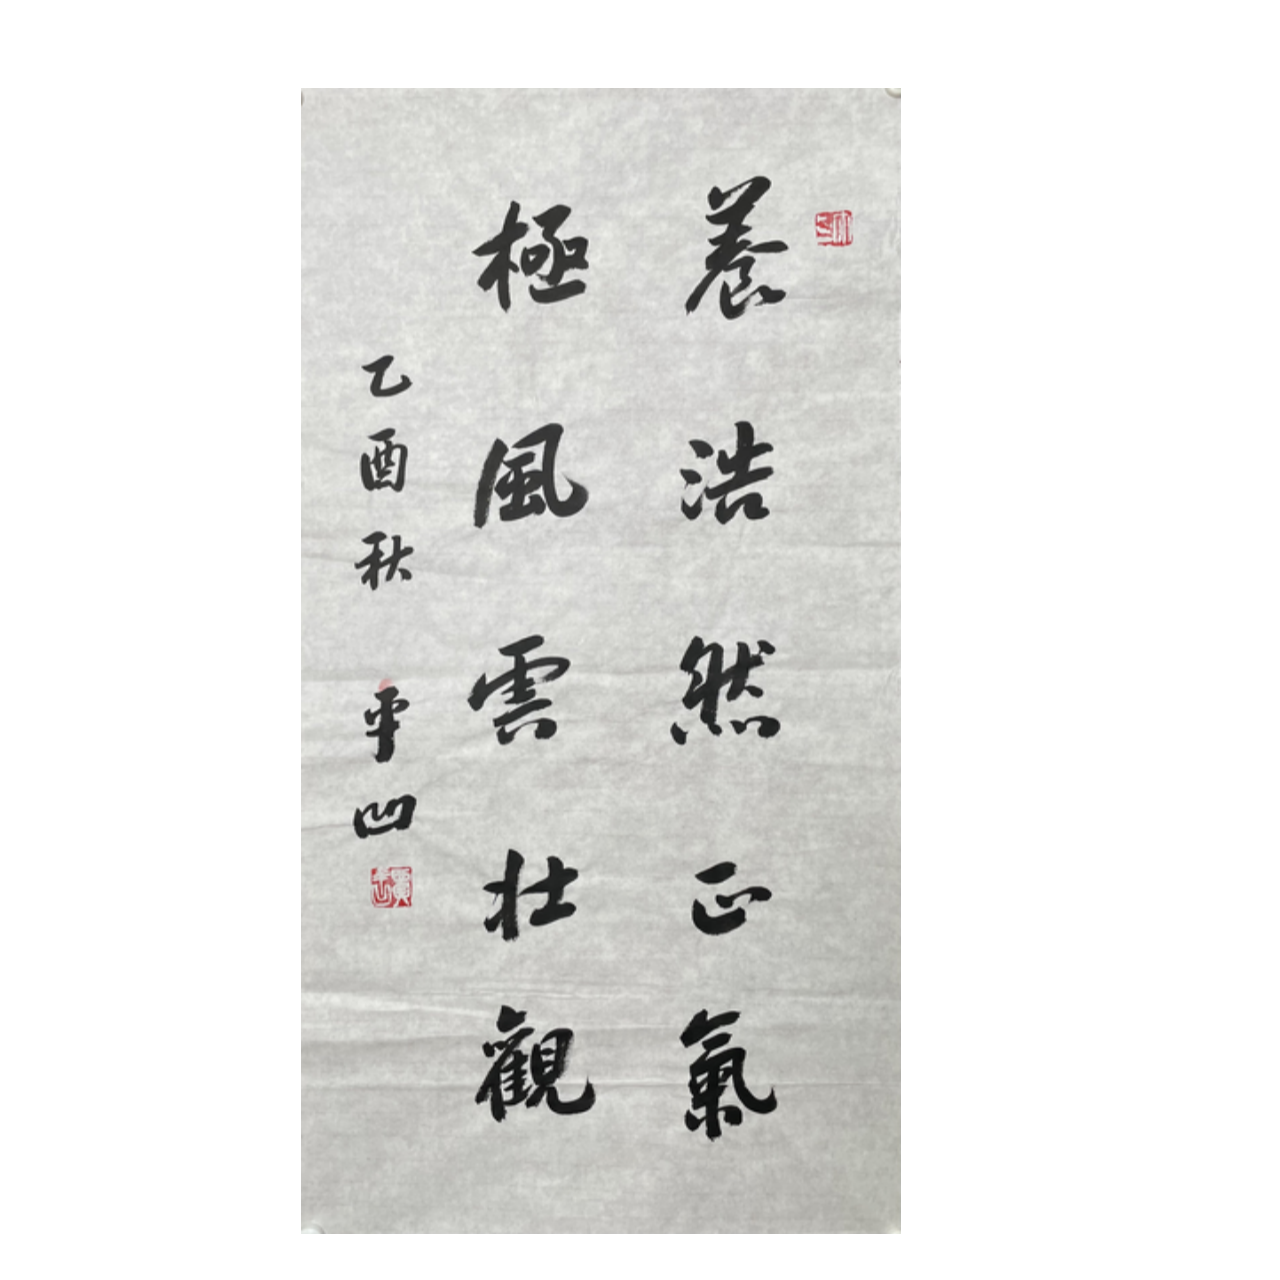 養浩然正氣
極風雲壯觀
乙酉秋
平凹